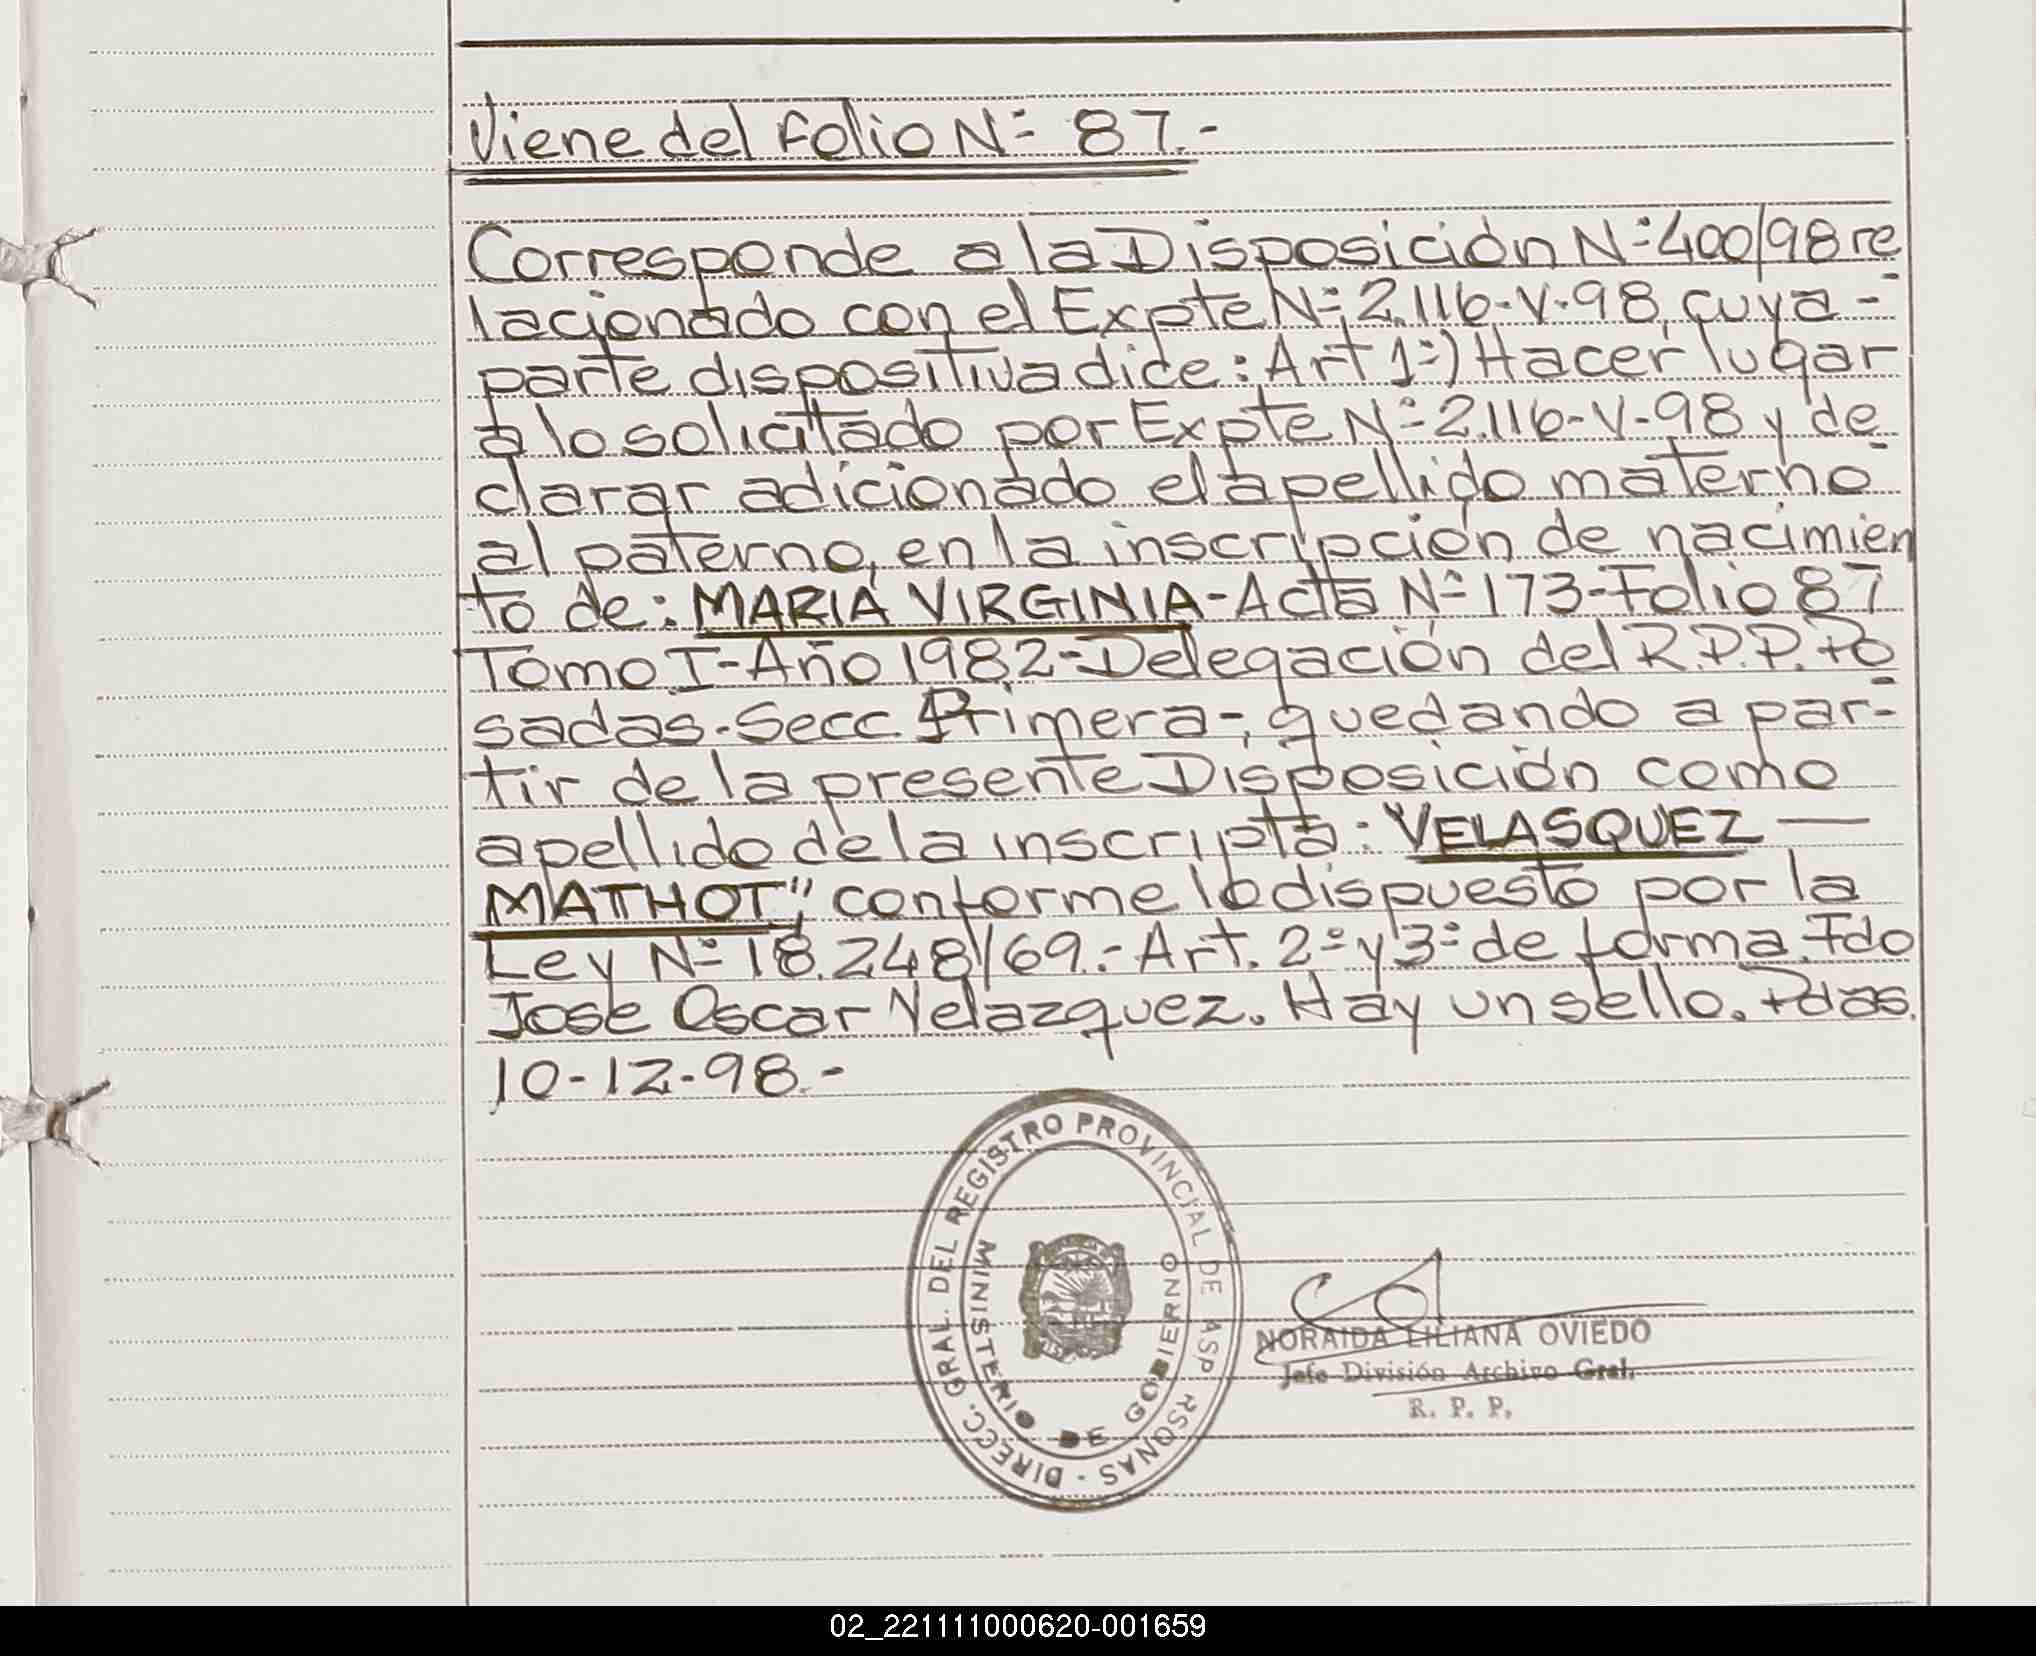 Viene del Folio Nº 87.-
Corresponde a la Disposición Nº 400/98 re
lacionado con el Expte Nº 2.116-V-98, cuya -
parte dispositiva dice: Art 1º) Hacer lugar
a lo solicitado por Expte Nº 2.116-V-98 y de
clarar adicionado el apellido materno
al paterno, en la inscripción de nacimien
to de: MARIA VIRGINIA-Acta Nº 173-Folio 87
Tomo I-Año 1982-Delegación del R.P.P. Po
sadas. Secc. Primera-, quedando a par-
tir de la presente Disposición como
apellido de la inscripta: "VELASQUEZ —
MATHOT", conforme lo dispuesto por la
Ley Nº 18.248/69.- Art. 2º y 3º de forma. Fdo
Jose Oscar Velazquez. Hay un sello. Pdas.
10-12-98.-
DIRECC. GRAL. DEL REGISTRO PROVINCIAL DE ASP RSONAS -
MINISTERIO DE GOBIERNO
NORAIDA LILIANA OVIEDO
Jefe División Archivo Gral.
R. P. P.
02_221111000620-001659